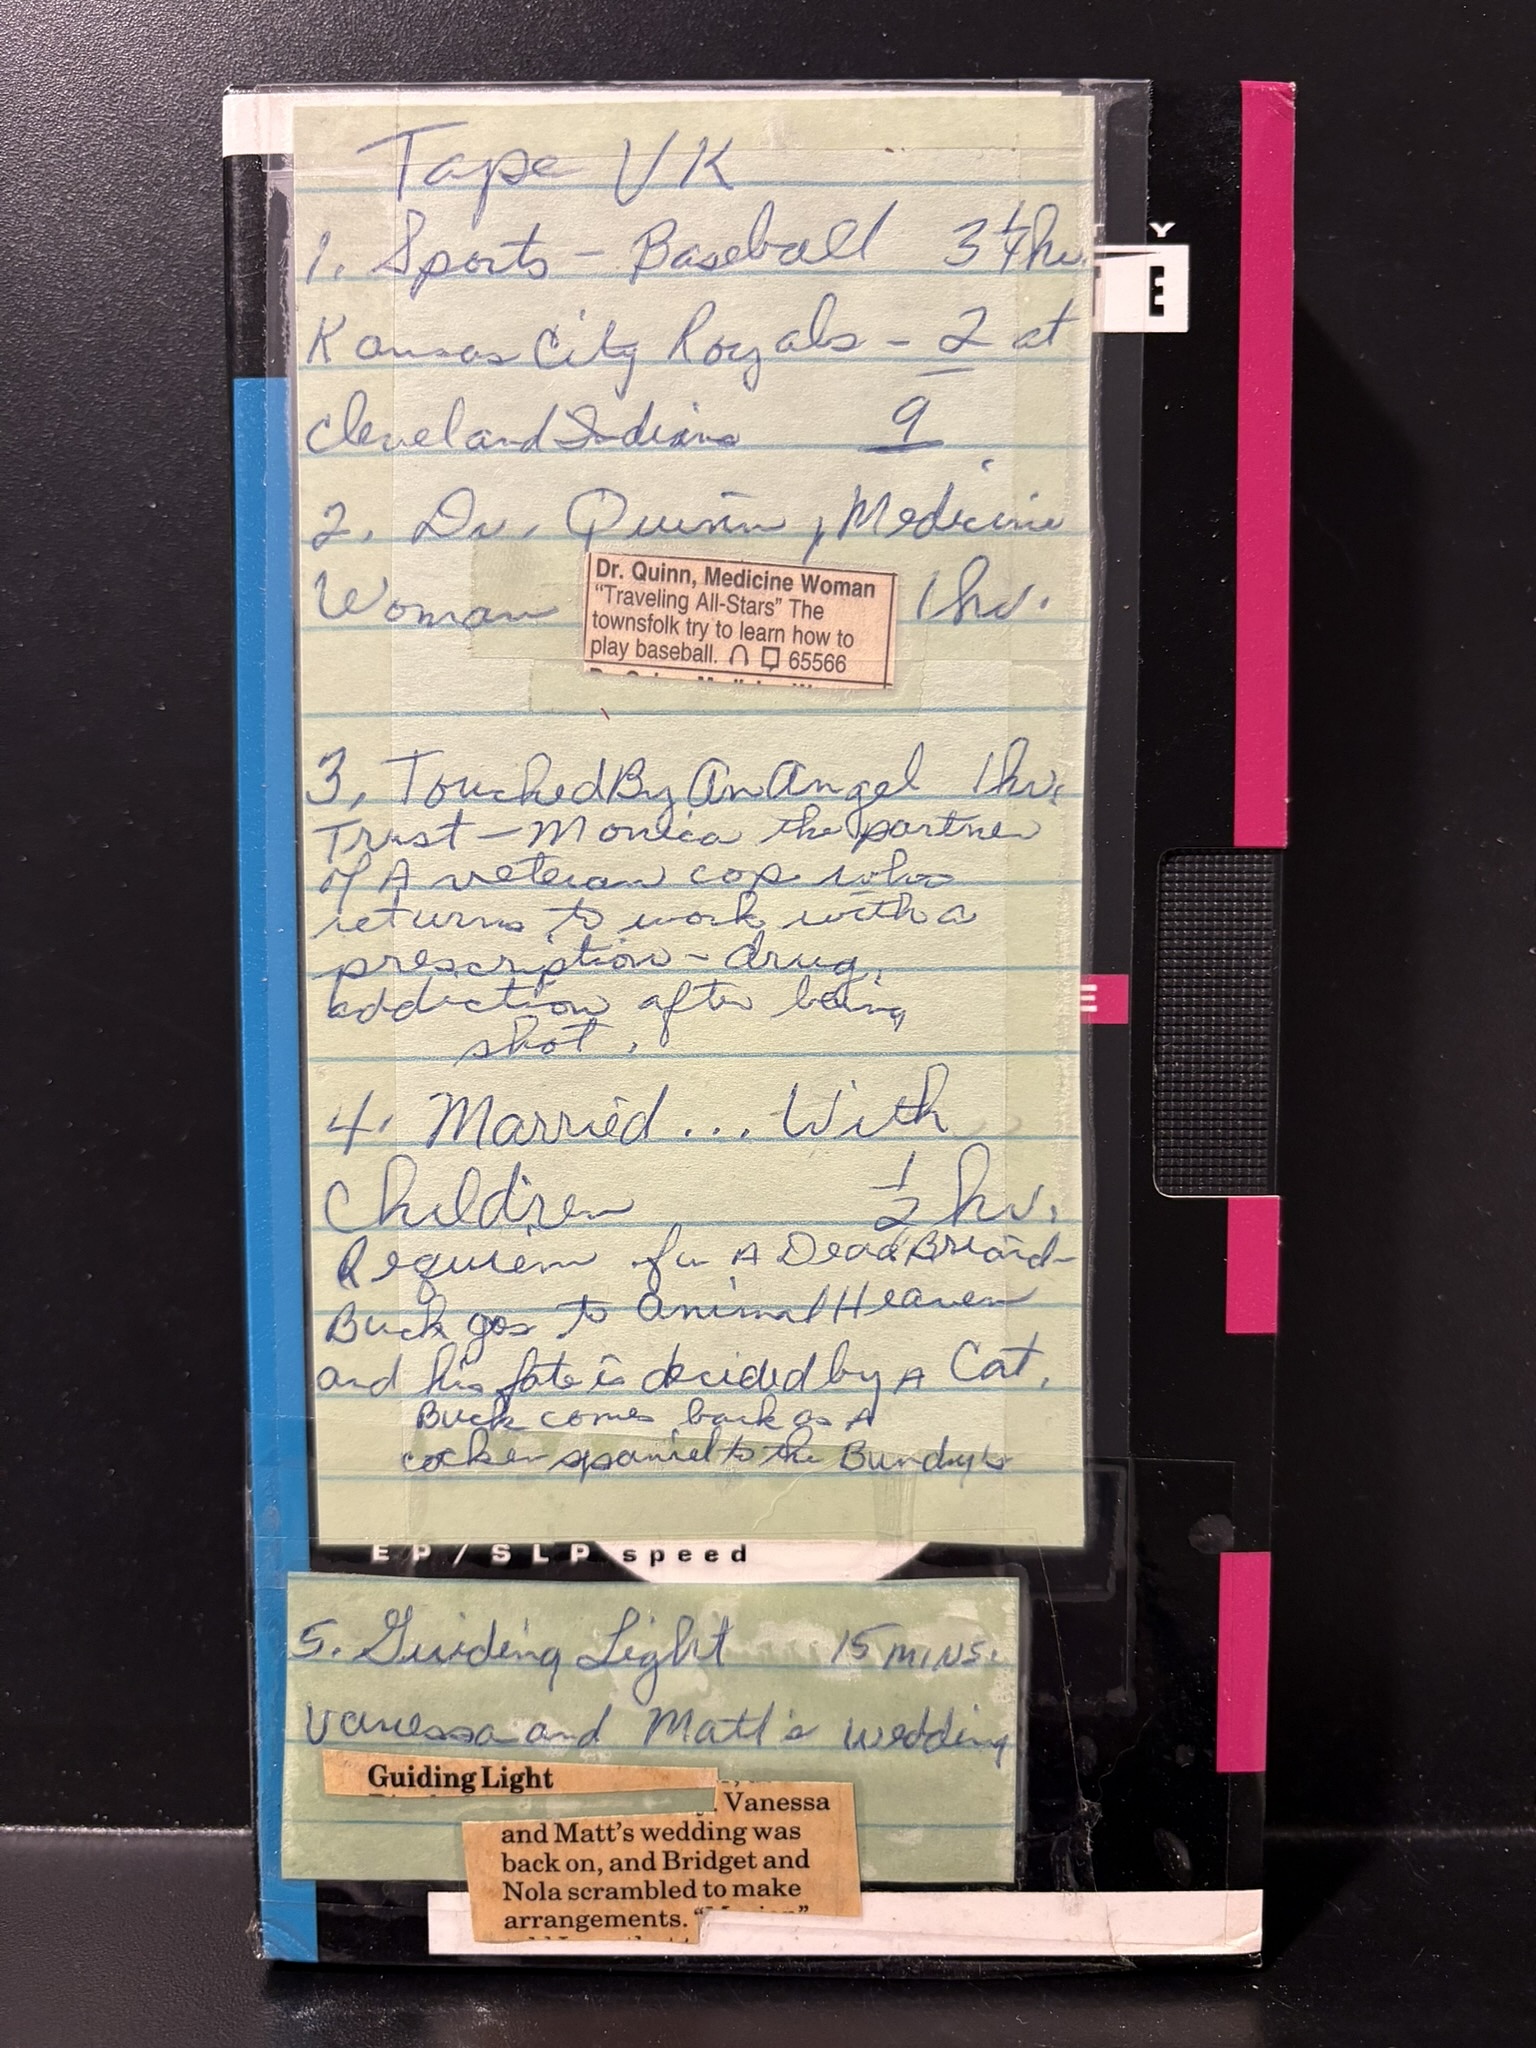 Tape VK
1. Sports - Baseball 3 1/4 hr.
Kansas City Royals - 2 at
Cleveland Indians 9
2. Dr. Quinn, Medicine
Woman 1 hr.
Dr. Quinn, Medicine Woman
"Traveling All-Stars" The
townsfolk try to learn how to
play baseball. 65566
3. Touched By An Angel 1 hr.
Trust - Monica the partner
of A veteran cop who
returns to work with a
prescription - drug
addiction after being
shot.
4. Married... With
Children 1/2 hr.
Requiem for A Dead Briard -
Buck goes to Animal Heaven
and his fate is decided by A Cat.
Buck comes back as A
cocker spaniel to the Bundy's
EP/SLP speed
5. Guiding Light 15 MINS.
Vanessa and Matt's wedding
Guiding Light
Vanessa
and Matt's wedding was
back on, and Bridget and
Nola scrambled to make
arrangements.
Y
E
E